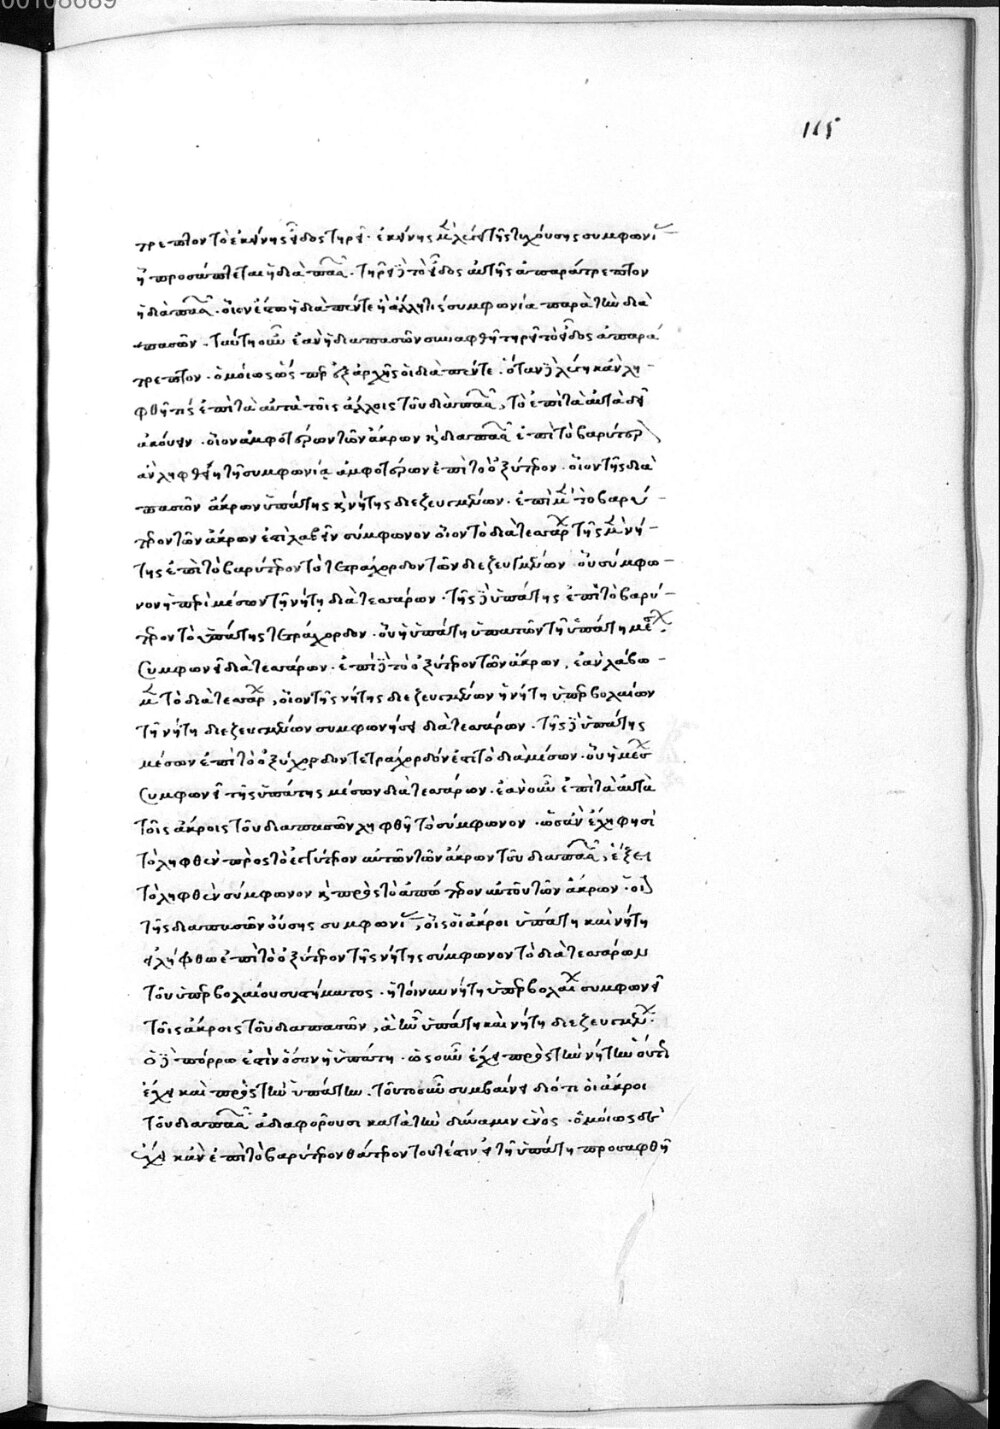 00108689
115
τρεπτον τὸ ἐκείνης εἶδος τηρεῖ. ἐκείνης μὲν λείψει τῆς τυχούσης συμφωνί
ἢ προσάπτεται ἡ διὰ πασῶν. τηρεῖ δὲ τὸ εἶδος αὐτῆς ἀπαράτρεπτον
ἡ διὰ πασῶν. οἷον ἔστω ἡ διὰ πέντε ἢ ἄλλη τις συμφωνία παρὰ τὴν διὰ
πασῶν. ταύτη οὖν ἐὰν ἡ διαπασῶν συναφθῇ τηρεῖ τὸ εἶδος ἀπαρά
τρεπτον. ὁμοίως ὡς περ ἐξ ἀρχῆς οἱ διὰ πέντε. ὅταν δὲ κἂν λη
φθῇ τις ἐπὶ τὰ αὐτὰ τοῖς ἄλλοις τοῦ διὰ πασῶν, τὸ ἐπὶ τὰ αὐτὰ δεῖ
ἀκούειν. οἷον ἀμφοτέρων τῶν ἄκρων κ διαπασῶν ἐπὶ τὸ βαρύτερ
ἂν ληφθείη τῇ συμφωνίᾳ ἀμφοτέρων ἐπὶ τὸ ὀξύτερον. οἷον τῆς διὰ
πασῶν ἄκρων ὑπάτης κ νήτης διεζευγμένων. ἐπὶ μὲν τὸ βαρύ
τερον τῶν ἄκρων ἐπιλαβεῖν σύμφωνον οἷον τὸ διὰ τεσσάρ τῆς μὲν νή
της ἐπὶ τὸ βαρύτερον τὸ τετράχορδον τῶν διεζευγμένων οὗ σύμφω
νον ἡ περὶ μέσων τῇ νήτῃ διὰ τεσσάρων. τῆς δὲ ὑπάτης ἐπὶ τὸ βαρύ
τερον τὸ ὑπάτης τετράχορδον. οὗ ἡ ὑπάτη ὑπατῶν τῇ ὑπάτῃ μέσ
συμφωνεῖ διὰ τεσσάρων. ἐπὶ δὲ τὸ ὀξύτερον τῶν ἄκρων, ἐὰν λάβω
μεν τὸ διὰ τεσσάρ, οἷον τῆς νήτης διεζευγμένων ἡ νήτη ὑπερβολαίων
τῇ νήτῃ διεζευγμένων συμφωνήσει διὰ τεσσάρων. τῆς δὲ ὑπάτης
μέσων ἐπὶ τὸ ὀξύχορδον τετράχορδόν ἐστι τὸ διὰ μέσων. οὗ ἡ μέση
συμφωνεῖ τῆς ὑπάτης μέσων διὰ τεσσάρων. ἐὰν οὖν ἐπὶ τὰ αὐτὰ
τοῖς ἄκροις τοῦ διαπασῶν ληφθῇ τὸ σύμφωνον. ὡς ἂν ἔχῃ φησὶ
τὸ ληφθὲν πρὸς τὸ ἐγγύτερον αὐτῶν τῶν ἄκρων τοῦ διαπασῶν, ἕξει
τὸ ληφθὲν σύμφωνον κ πρὸς τὸ ἀπώτερον αὐτοῦ τῶν ἄκρων. οἷ
τῆς διαπασῶν οὔσης συμφωνί, οἷς οἱ ἄκροι ὑπάτη καὶ νήτη
εἰλήφθω ἐπὶ τὸ ὀξύτερον τῆς νήτης σύμφωνον τὸ διὰ τεσσάρων
τοῦ ὑπερβολαίου συστήματος. ἡ τοίνυν νήτη ὑπερβολαί συμφωνεῖ
τοῖς ἄκροις τοῦ διαπασῶν, ἃ ἦν ὑπάτη καὶ νήτη διεζευγμέν.
ὃ δὲ πόρρω ἐστὶν ὅσον ἡ ὑπάτη. ὡς οὖν ἔχει πρὸς τὴν νήτην οὕτω
ἔχει καὶ πρὸς τὴν ὑπάτην. τοῦτο οὖν συμβαίνει διότι οἱ ἄκροι
τοῦ διαπασῶν ἀδιαφοροῦσι κατὰ τὴν δύναμιν ἑνός. ὁμοίως δὲ
ἔχει κἂν ἐπὶ τὸ βαρύτερον θάτερον τουτέστιν εἰ τῇ ὑπάτῃ προσαφθῇ